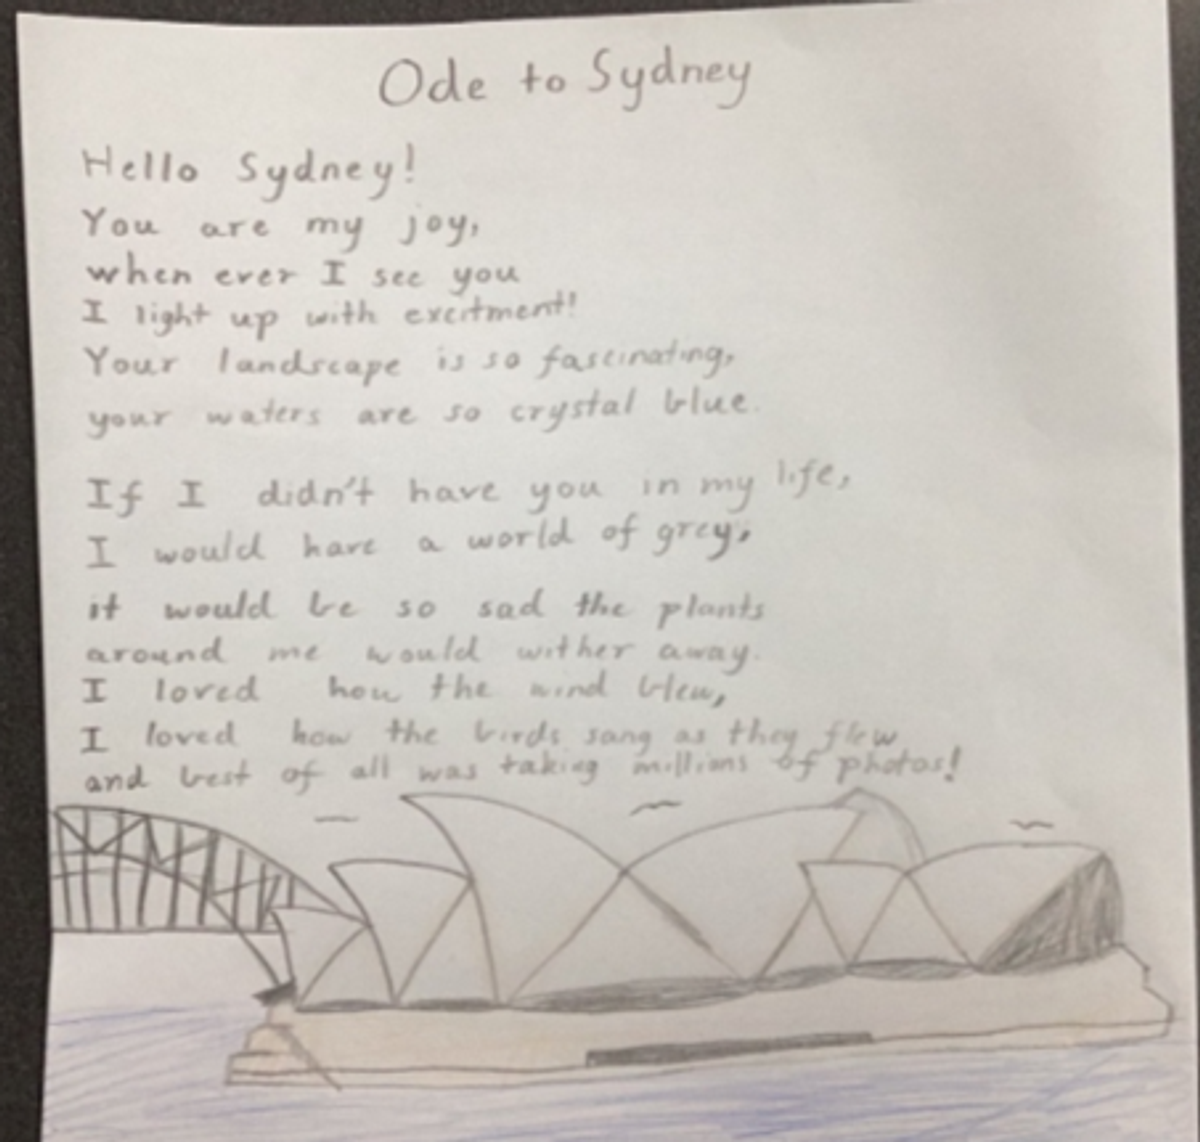 Ode to Sydney
Hello Sydney!
You are my joy,
when ever I see you
I light up with excitment!
Your landscape is so fascinating,
your waters are so crystal blue.
If I didn't have you in my life,
I would have a world of grey,
it would be so sad the plants
around me would wither away.
I loved how the wind blew,
I loved how the birds sang as they flew
and best of all was taking millions of photos!